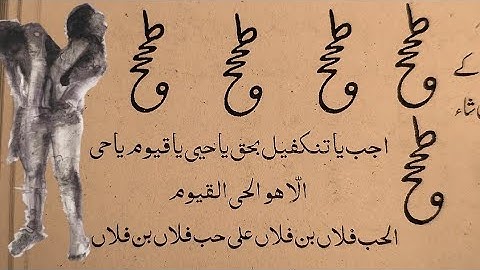 کے
شاء
اجب یا تنکفیل بحق یا حیی یا قیوم یا حی
الّا هو الحی القیوم
الحب فلاں بن فلاں علی حب فلاں بن فلاں